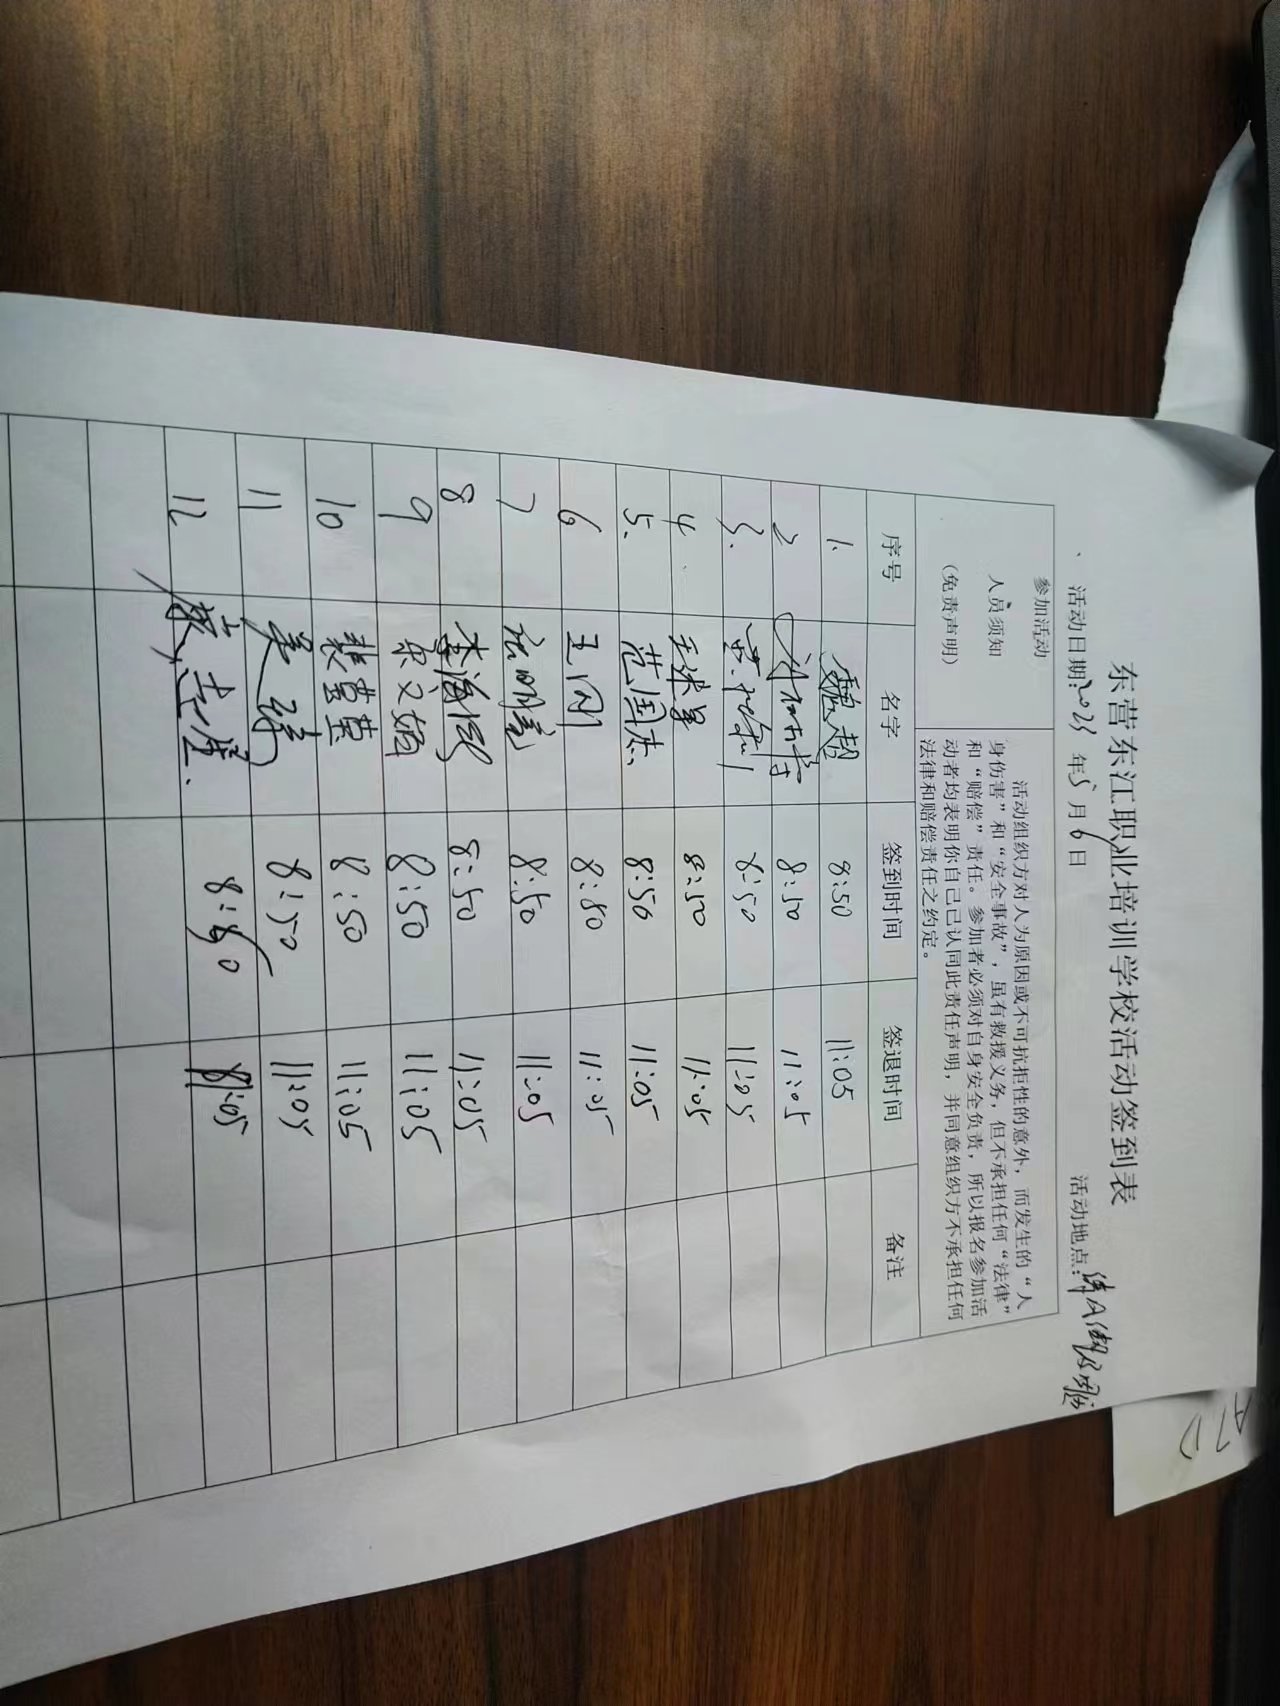 东营东江职业培训学校活动签到表
活动日期:2023年5月6日 活动地点:
参加活动
人员须知
(免责声明)
活动组织方对人为原因或不可抗拒性的意外,而发生的“人
身伤害”和“安全事故”,虽有救援义务,但不承担任何“法律”
和“赔偿”责任。参加者必须对自身安全负责,所以报名参加活
动者均表明你自己已认同此责任声明,并同意组织方不承担任何
法律和赔偿责任之约定。
序号 名字 签到时间 签退时间 备注
1. 魏超 8:50 11:05
2. 8:50 11:05
3. 8:50 11:05
4. 8:50 11:05
5. 范国杰 8:50 11:05
6 王刚 8:80 11:05
7 8:50 11:05
8 李海 8:50 11:05
9 8:50 11:05
10 裴蕾蕾 8:50 11:05
11 8:50 11:05
12 8:50 11:05
A7D